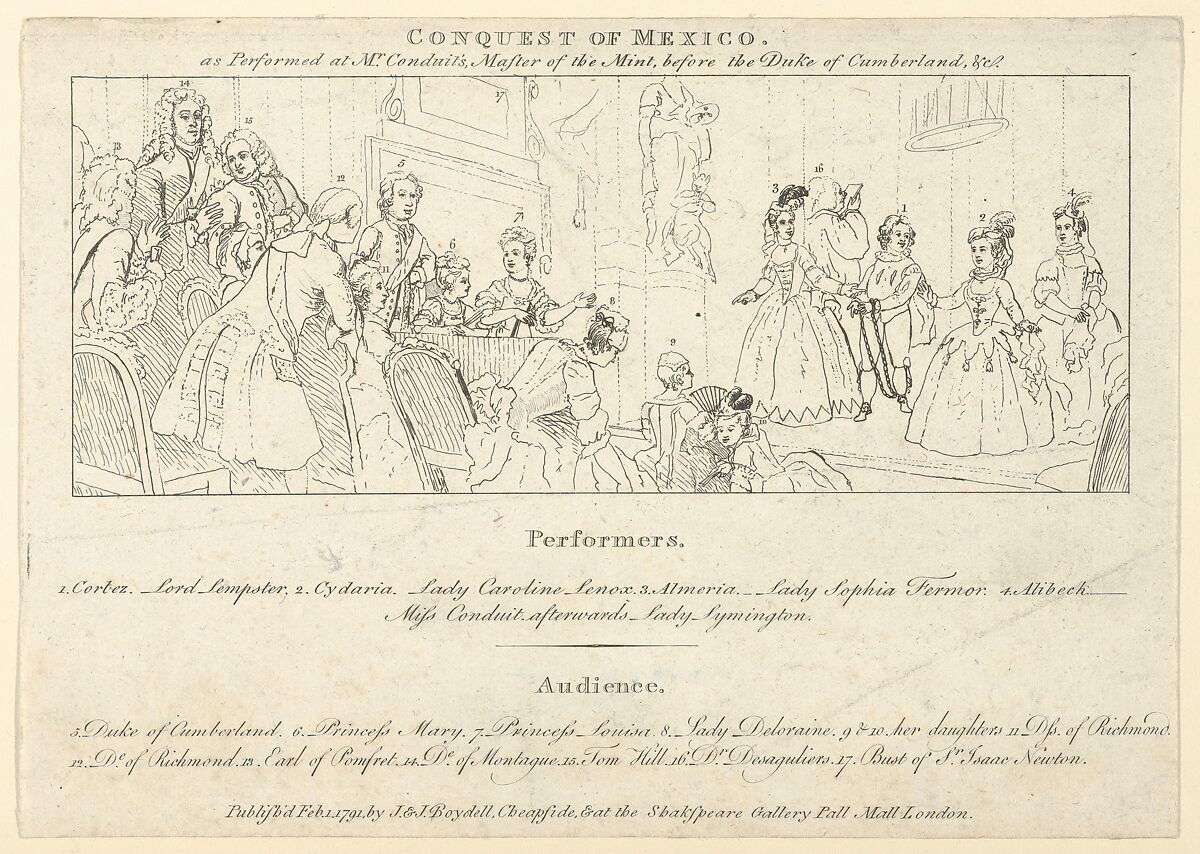 CONQUEST OF MEXICO.
as Performed at Mr. Conduit's, Master of the Mint, before the Duke of Cumberland, &c.
14
17
13
15
16
12
5
3
4
1
2
7
6
11
8
9
10
Performers.
1. Cortez. Lord Lempster. 2. Cydaria. Lady Caroline Lenox. 3. Almeria. Lady Sophia Fermor. 4. Alibech.
Miss Conduit afterwards Lady Lymington.
Audience.
5. Duke of Cumberland. 6. Princess Mary. 7. Princess Louisa. 8. Lady Deloraine. 9 & 10. her daughters 11 Dss. of Richmond.
12. De. of Richmond. 13. Earl of Pomfret. 14. De. of Montague. 15. Tom Hill. 16. Dr. Desaguliers. 17. Bust of Sr. Isaac Newton.
Publish'd Feb. 1. 1791, by J. & J. Boydell, Cheapside, & at the Shakspeare Gallery Pall Mall London.